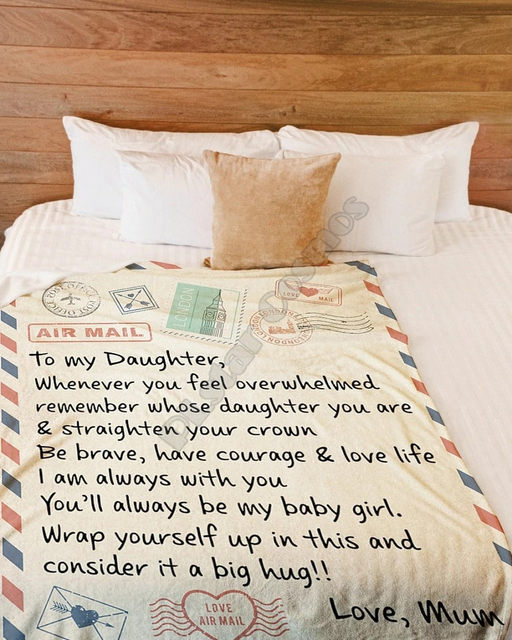 LONDON
LOVE MAIL
AIR MAIL
To my Daughter,
Whenever you feel overwhelmed
remember whose daughter you are
& straighten your crown
Be brave, have courage & love life
I am always with you
You'll always be my baby girl.
Wrap yourself up in this and
consider it a big hug!!
Love, Mum
LOVE
AIR MAIL